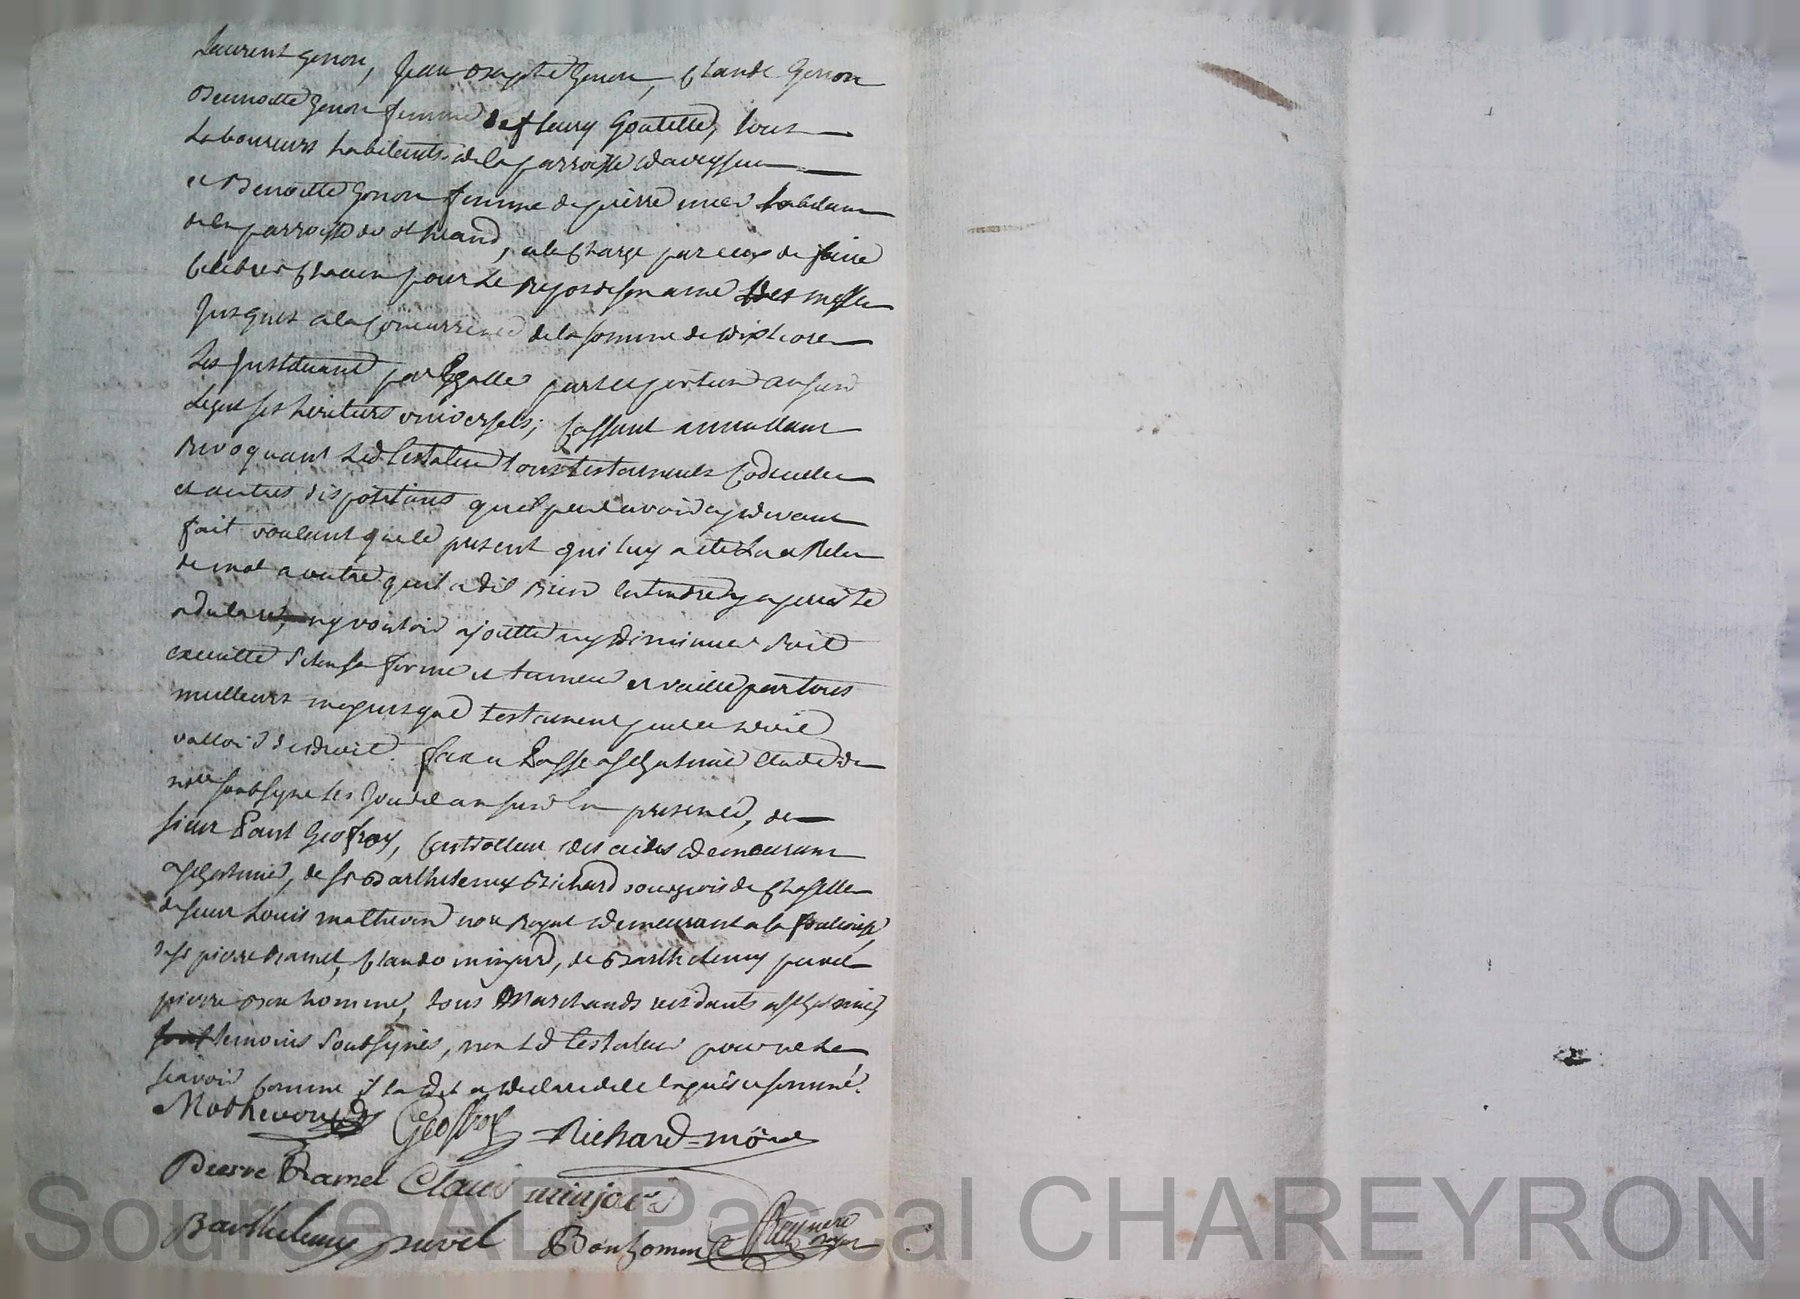 Laurent Gonon, Jean Baptiste Gonon, Claude Gonon
Benoitte Gonon femme de fleury Goutelle, tous
Laboureurs habitants de la parroisse daveysieu
et Benoitte Gonon femme de pierre habitans
de la parroisse de st heand, a la Charge par eux de faire
Celebrer Chacun pour Le Repos de son ame des messes
Jusques a la Concurrence de la somme de dix livres
Les Instituant par Egalle part et portion au surd
legat ses heritiers universels; Cassant annullant
Revoquant Led testateur tous testaments Codicilles
et autres dispositions quil peut avoir cy devant
fait voulant que le present qui luy a ete Lu et Relu
de mot a autre quil a dit Bien Entendre y a persisté
ny vouloir ajoutter ny diminuer Soit
executté Selon sa forme et teneur et vaille par tous
meilleurs moyens que testament peut et doit
valloir de droit. fait et Passé a st galmier Etude du
nore soubsigné les Jour et an susd En presence, de
sieur Paul Geofroy, Controlleur des aides demeurant
a st galmier, de sr Barthelemy Richard bourgeois de Chaselles
de sieur Louis mathevon nore Royal demeurant a la fouliouse,
de sr pierre Ramel, Claude minjard, de Barthelemy
pierre Bon homme, tous Marchands residants a st galmier,
temoins Soubsignés, non Led testateur pour ne le
scavoir Comme il la dit et declaré de ce Enquis et sommé.
Mathevon Geoffroy Richard
Pierre Ramel Claude minjard
Barthelemy Bonhomme
Source AD Pascal CHAREYRON